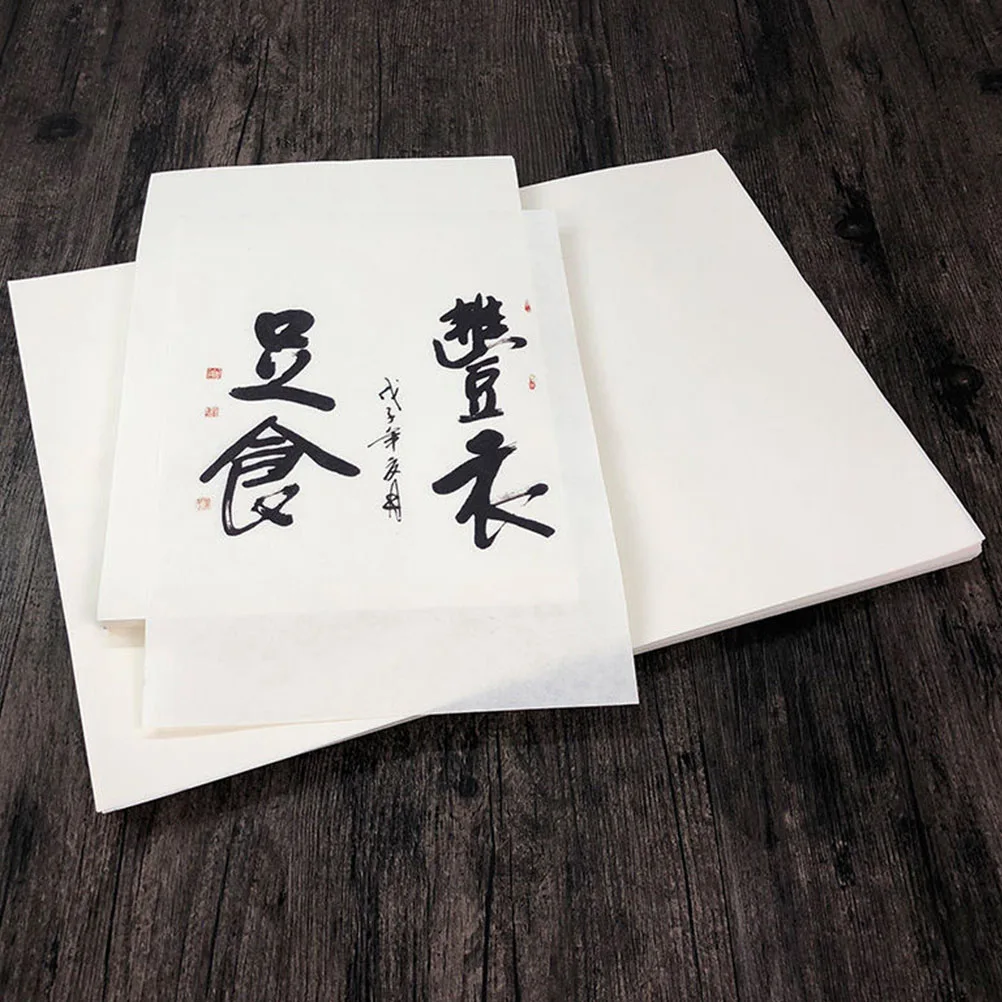 豐衣
足食
戊子年夏月